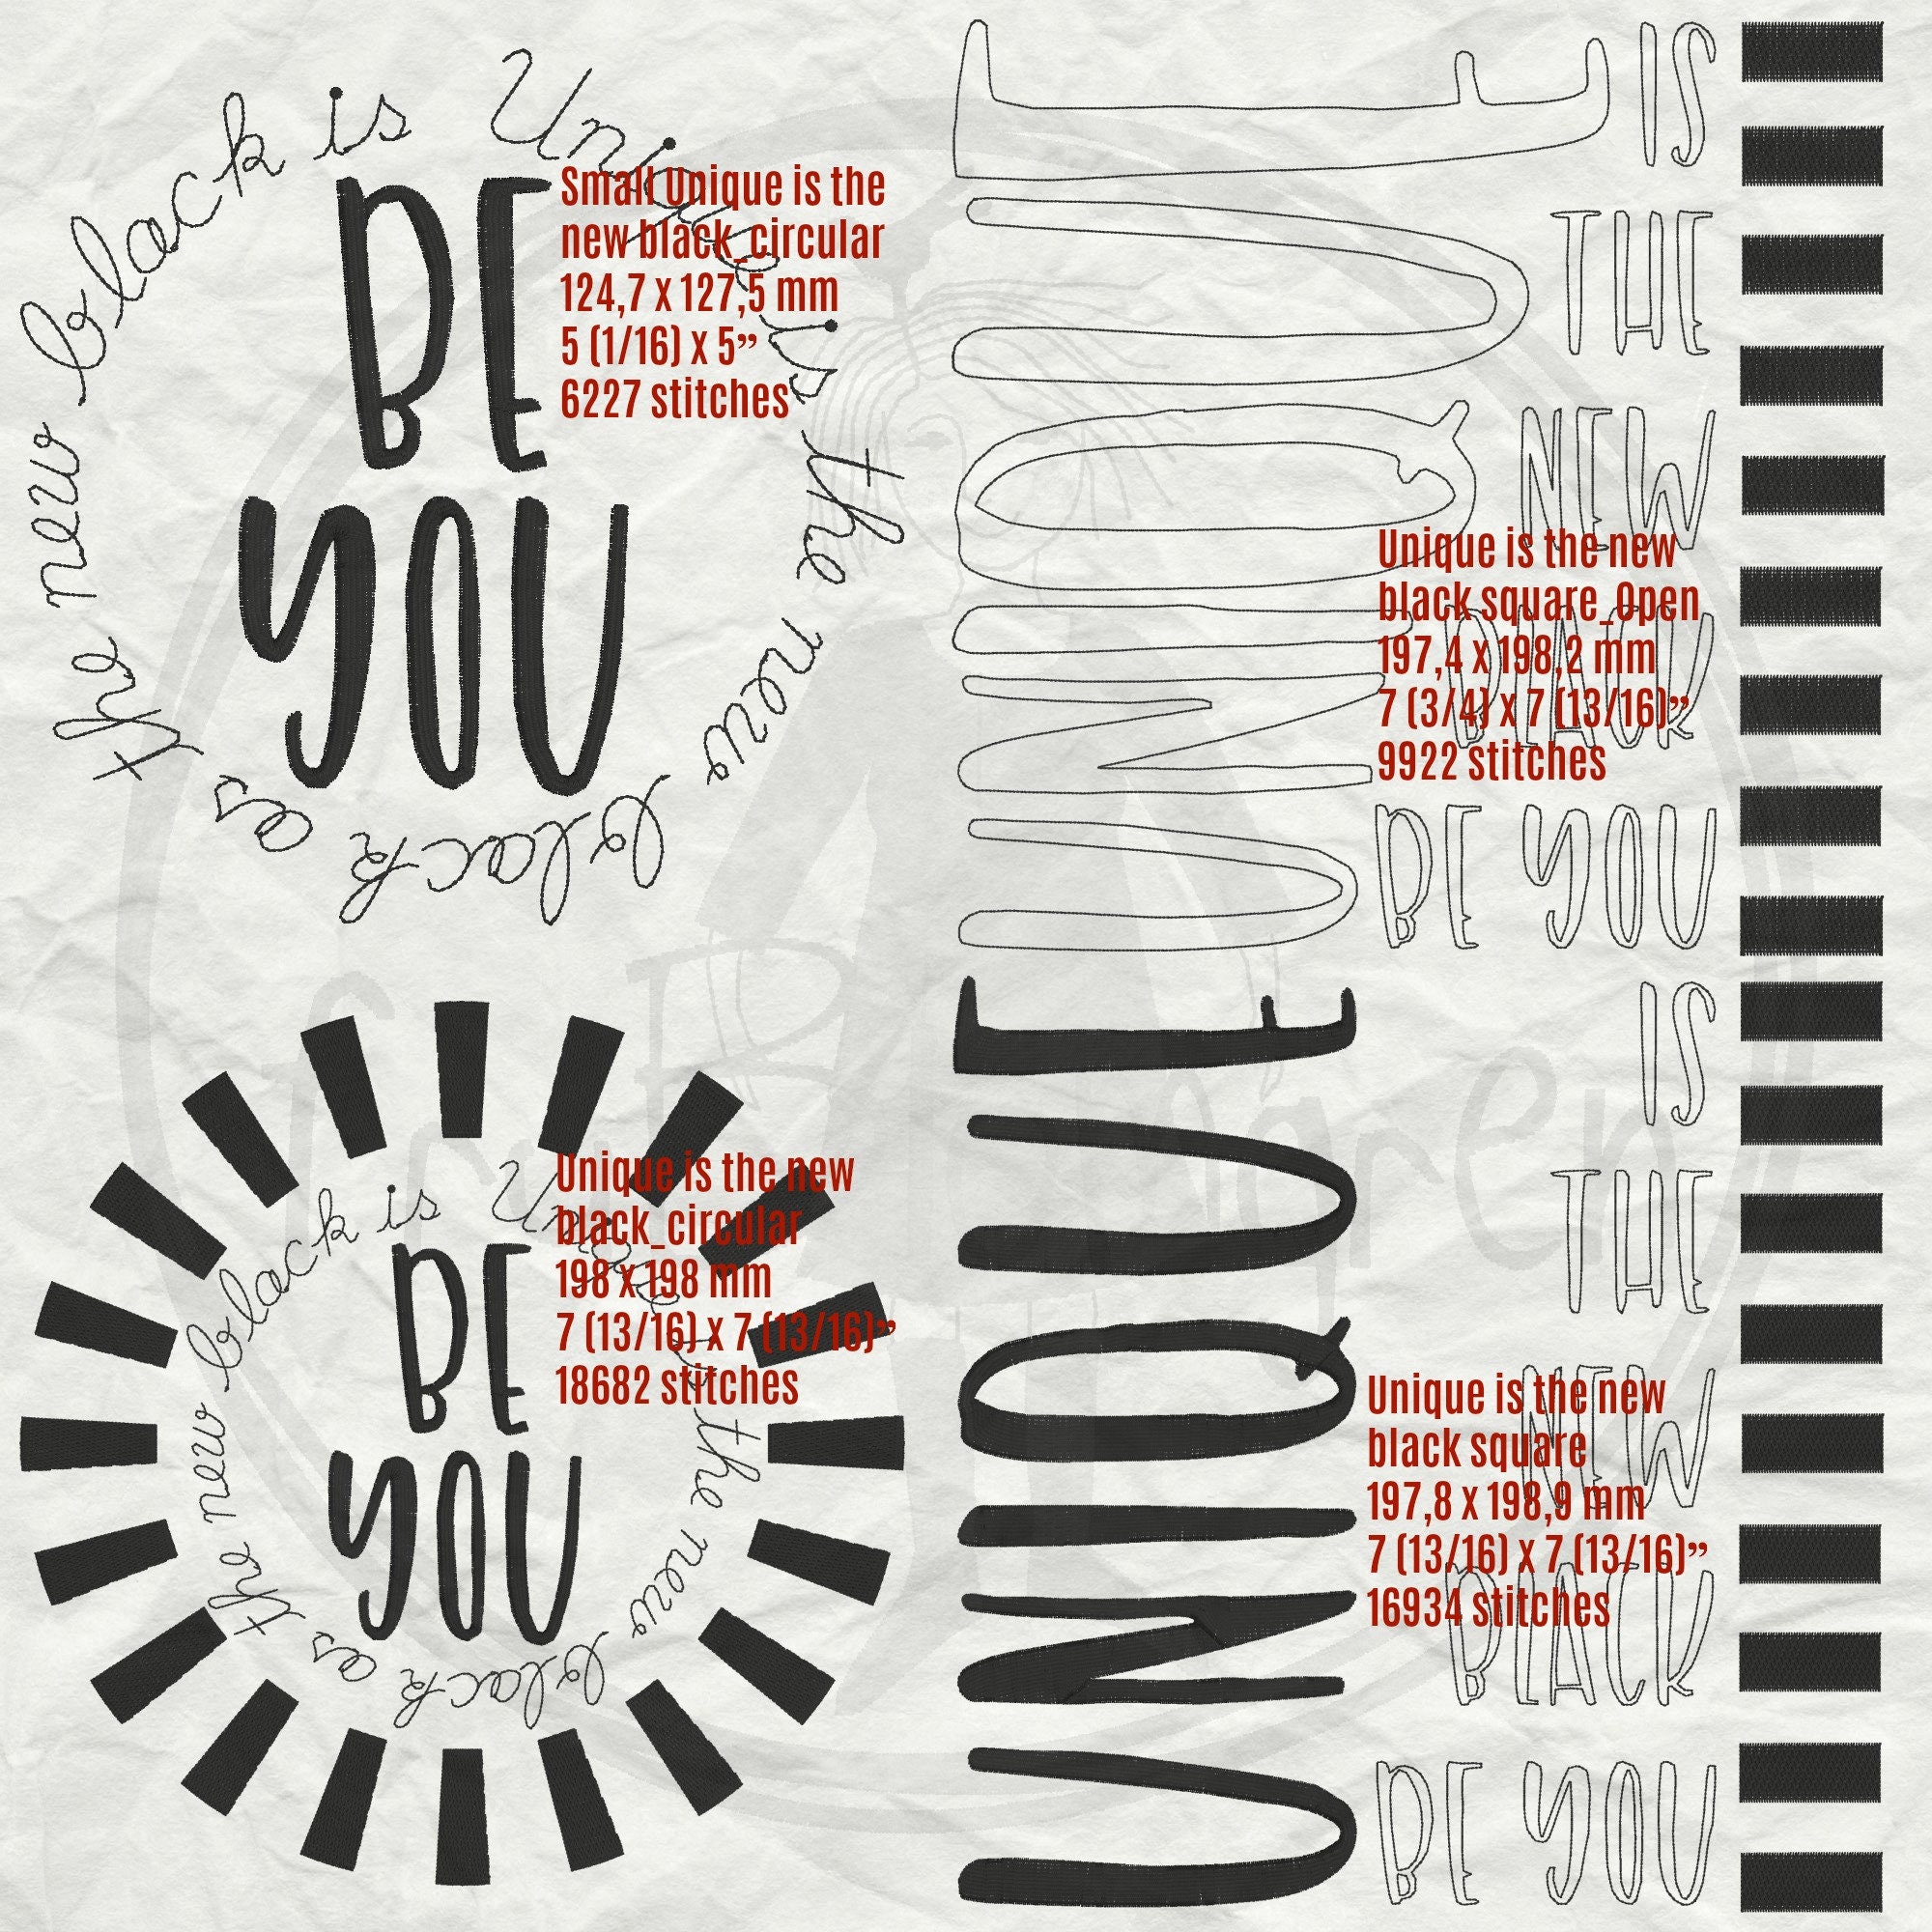 Unique is the new black as the new black is
BE
YOU
Small Unique is the
new black_circular
124,7 x 127,5 mm
5 (1/16) x 5”
6227 stitches
UNIQUE
IS
THE
NEW
BLACK
BE YOU
Unique is the new
black square_Open
197,4 x 198,2 mm
7 (3/4) x 7 (13/16)”
9922 stitches
Unique is the new black as the new black is
BE
YOU
Unique is the new
black_circular
198 x 198 mm
7 (13/16) x 7 (13/16)”
18682 stitches
UNIQUE
IS
THE
NEW
BLACK
BE YOU
Unique is the new
black square
197,8 x 198,9 mm
7 (13/16) x 7 (13/16)”
16934 stitches